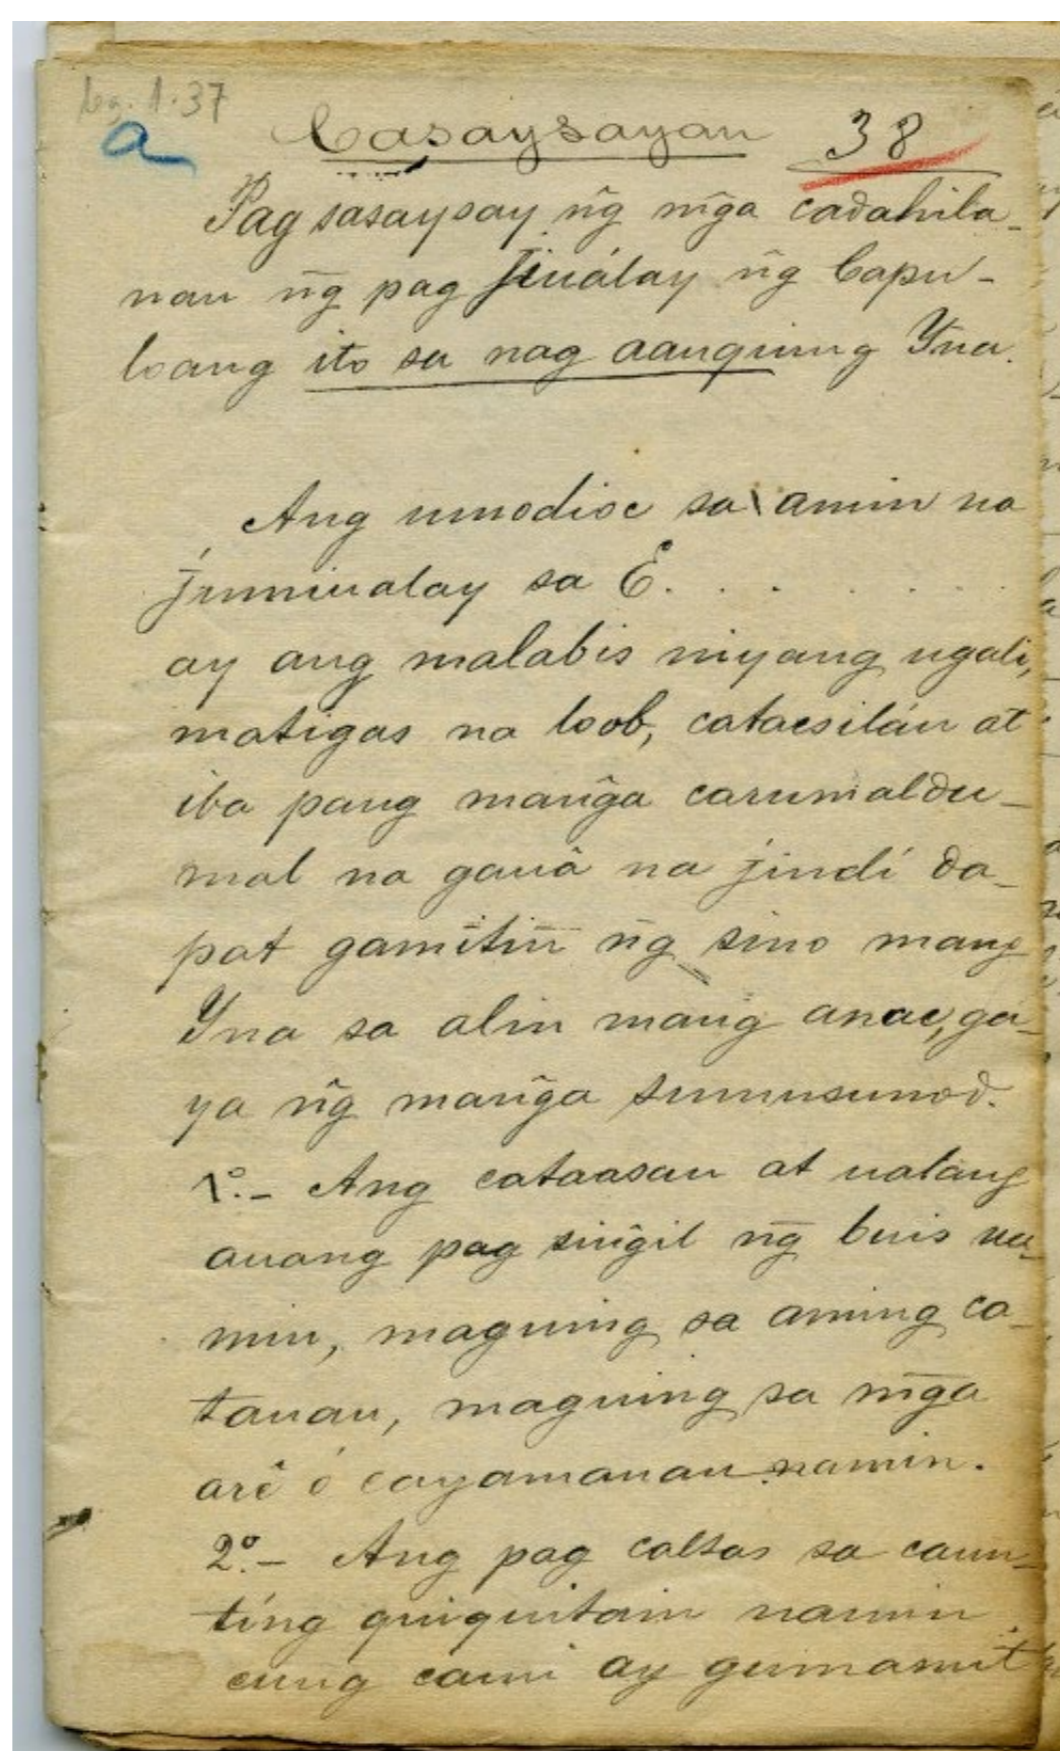 Leg. 1.37
a Casaysayan 38
Pag sasaysay n̄g m̄ga cadahila-
nan n̄g pag jiuálay n̄g Capu-
loang ito sa nag aanquing Yna.
Ang umodioc sa amin na
jumiualay sa E. . . . . . .
ay ang malabis niyang ugali,
matigas na loob, catacsilán at
iba pang man̄ga carumaldu-
mal na gauâ na jindi da-
pat gamitin n̄g sino mang
Yna sa alin mang anac, ga-
ya n̄g man̄ga sumusunod.
1.º- Ang cataasan at ualang
auang pag sin̄gil n̄g buis na-
min, maguing sa aming ca-
tauan, maguing sa m̄ga
arê ó cayamanan namin.
2.º- Ang pag caltas sa caun-
ting quiquitain namin
cung cami ay gumamit